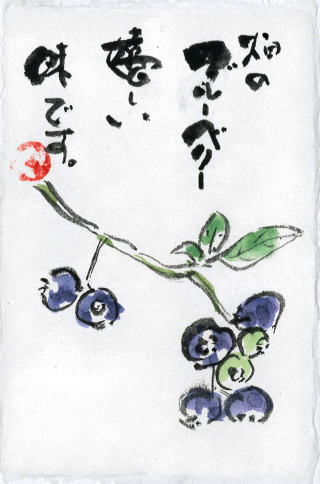 畑の
ブルーベリー
嬉しい
味です。